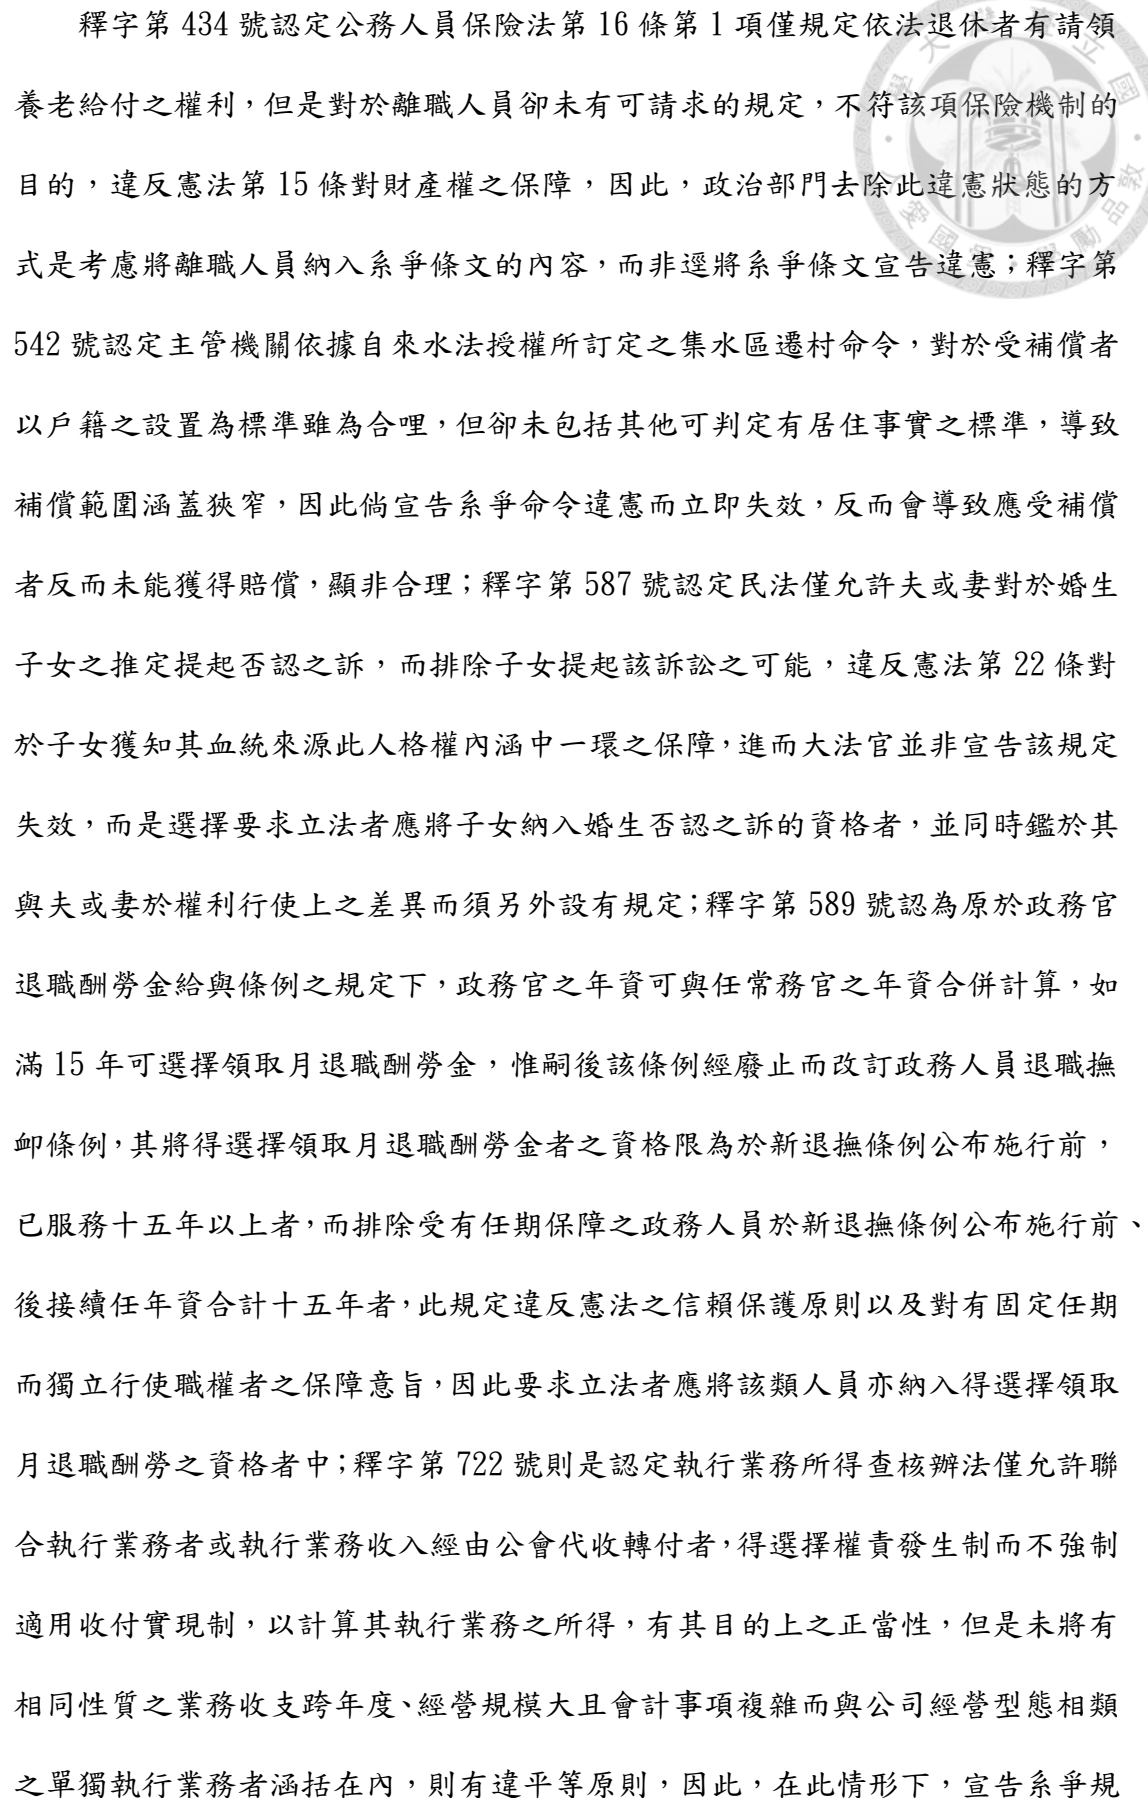 釋字第 434 號認定公務人員保險法第 16 條第 1 項僅規定依法退休者有請領
養老給付之權利，但是對於離職人員卻未有可請求的規定，不符該項保險機制的
目的，違反憲法第 15 條對財產權之保障，因此，政治部門去除此違憲狀態的方
式是考慮將離職人員納入系爭條文的內容，而非逕將系爭條文宣告違憲；釋字第
542 號認定主管機關依據自來水法授權所訂定之集水區遷村命令，對於受補償者
以戶籍之設置為標準雖為合哩，但卻未包括其他可判定有居住事實之標準，導致
補償範圍涵蓋狹窄，因此倘宣告系爭命令違憲而立即失效，反而會導致應受補償
者反而未能獲得賠償，顯非合理；釋字第 587 號認定民法僅允許夫或妻對於婚生
子女之推定提起否認之訴，而排除子女提起該訴訟之可能，違反憲法第 22 條對
於子女獲知其血統來源此人格權內涵中一環之保障，進而大法官並非宣告該規定
失效，而是選擇要求立法者應將子女納入婚生否認之訴的資格者，並同時鑑於其
與夫或妻於權利行使上之差異而須另外設有規定；釋字第 589 號認為原於政務官
退職酬勞金給與條例之規定下，政務官之年資可與任常務官之年資合併計算，如
滿 15 年可選擇領取月退職酬勞金，惟嗣後該條例經廢止而改訂政務人員退職撫
卹條例，其將得選擇領取月退職酬勞金者之資格限為於新退撫條例公布施行前，
已服務十五年以上者，而排除受有任期保障之政務人員於新退撫條例公布施行前、
後接續任年資合計十五年者，此規定違反憲法之信賴保護原則以及對有固定任期
而獨立行使職權者之保障意旨，因此要求立法者應將該類人員亦納入得選擇領取
月退職酬勞之資格者中；釋字第 722 號則是認定執行業務所得查核辦法僅允許聯
合執行業務者或執行業務收入經由公會代收轉付者，得選擇權責發生制而不強制
適用收付實現制，以計算其執行業務之所得，有其目的上之正當性，但是未將有
相同性質之業務收支跨年度、經營規模大且會計事項複雜而與公司經營型態相類
之單獨執行業務者涵括在內，則有違平等原則，因此，在此情形下，宣告系爭規